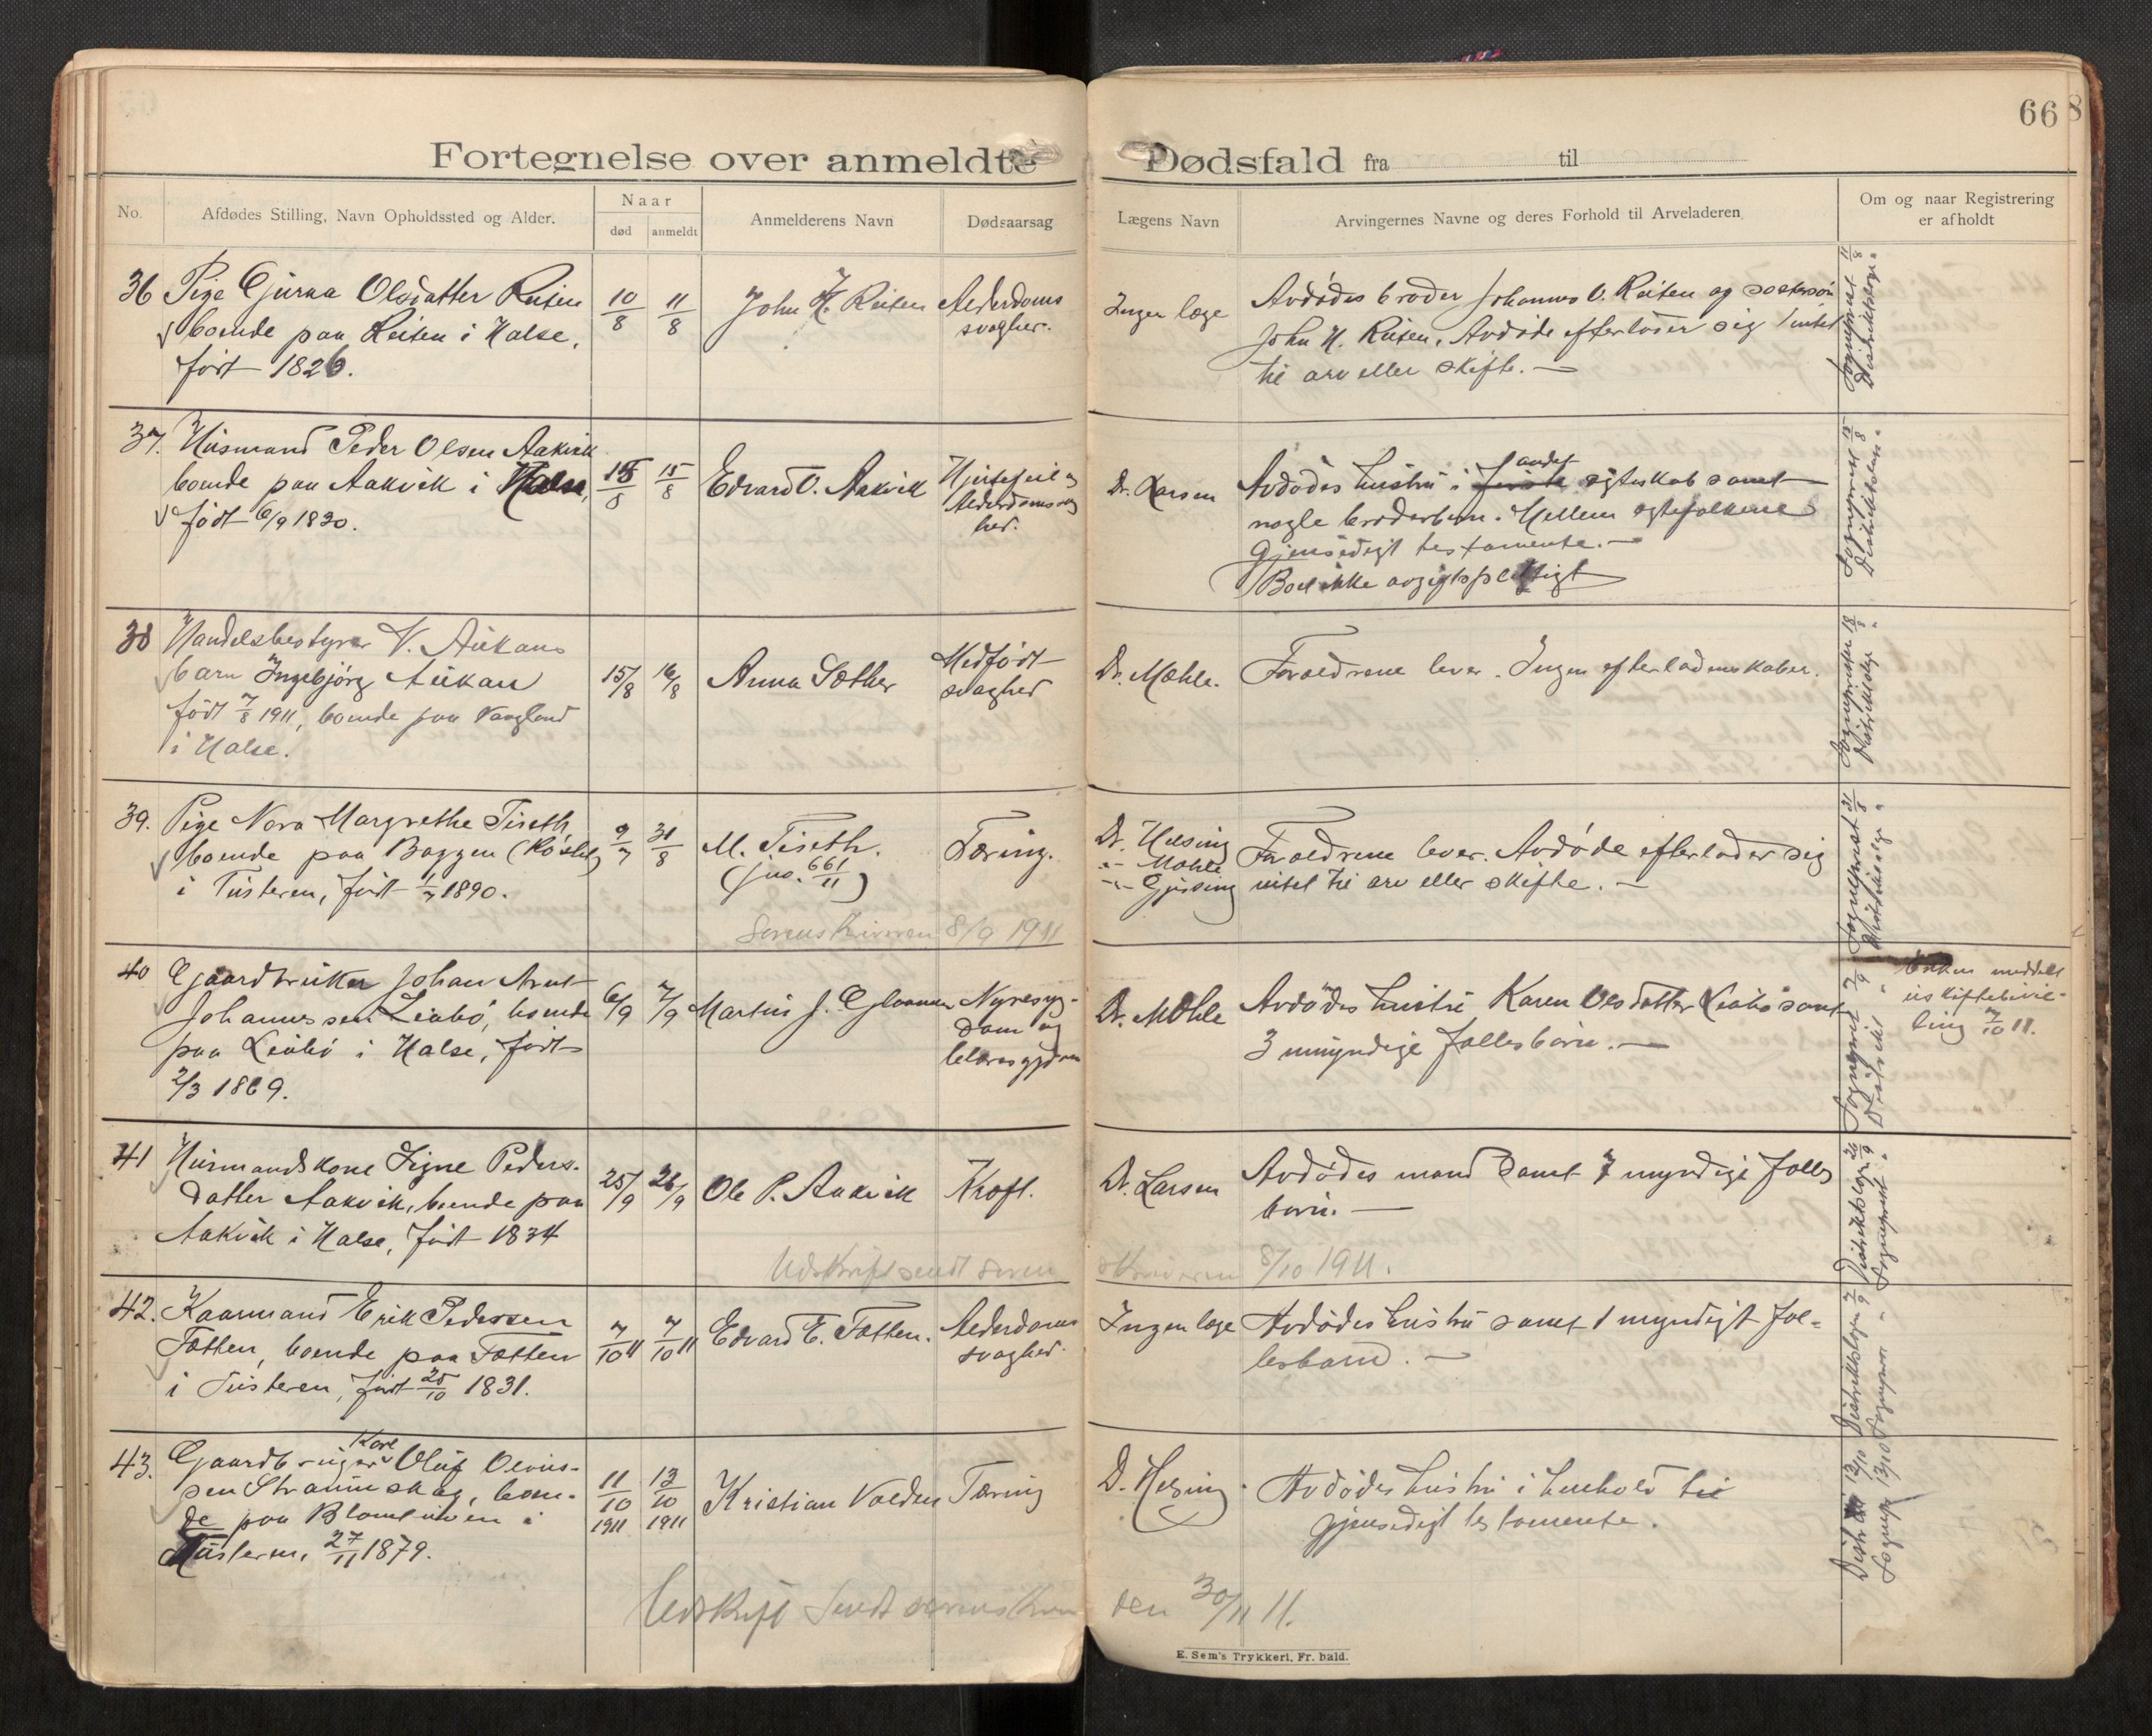 66
Fortegnelse over anmeldte Dødsfald fra til
No.
Afdødes Stilling, Navn Opholdssted og Alder.
Naar
død anmeldt
Anmelderens Navn
Dødsaarsag
Lægens Navn
Arvingernes Navne og deres Forhold til Arveladeren
Om og naar Registrering
er afholdt
36 Pige Gjuraa Olsdatter Reiten
boende paa Reiten i Halse,
født 1826.
10/8 11/8
John H. Reiten
Alderdoms
svaghed.
Ingen læge
Avdødes broder Johannes O. Reiten og søstersøn
John H. Reiten. Avdøde efterlater sig intet
til arv eller skifte. —
Sogneprest 11/8
Distriktslæge "
37. Husmand Peder Olsen Aakvik
boende paa Aakvik i Halse,
født 6/9 1830.
15/8 15/8
Edvard O. Aakvik
Hjertefeil og
Alderdomssvag
hed.
Dr. Larsen
andet
Avdødes hustru i første egteskab samt
nogle broderbørn. Mellem egtefolkene
gjensidigt testamente. —
Boet ikke avgiftspligtigt
Sogneprest 15/8
Distriktslæge "
38 Handelsbestyrer V. Aukans
barn Ingebjørg Aukan
født 7/8 1911, boende paa Vaagland
i Halse.
15/8 16/8
Anna Sæther
Medfødt
svaghed
Dr. Mohle.
Forældrene lever. Ingen efterladenskaber.
Sogneprest 18/8
Distriktslæge "
39. Pige Nora Margrethe Tiseth
boende paa Bøggen
i Tusteren, født 1/7 1890.
9/7 31/8
M. Tiseth.
(jno. 661/11)
Tæring.
Dr. Helsing
-"- Mohle
-"- Gjessing
Forældrene lever. Avdøde efterlader sig
intet til arv eller skifte. —
Sogneprest 31/8
Distriktslæge "
Sorenskriveren 8/9 1911
40 Gaardbruker Johan Arnt
Johannessen Leabø, boende
paa Leabø i Halse, født
2/3 1869.
6/9 7/9
Martin J. Glærum
Nyresyg-
dom og
Dr. Mohle
Avdødes hustru Karen Olsdatter Leabø samt
3 umyndige fællesbørn. —
Sogneprest 7/9
Distrikt "
Enken meddelt
uskiftebevil-
ling 7/10 11.
41 Husmandskone Signe Peders-
datter Aakvik, boende paa
Aakvik i Halse, født 1834
25/9 26/9
Ole P. Aakvik
Kræft.
Dr. Larsen
Avdødes mand samt 7 myndige fælles
børn. —
Distriktslæge 26/9
Sogneprest "
Udskrift sendt soren
skriveren 8/10 1911.
42. Kaarmand Erik Pedersen
Fætten, boende paa Fætten
i Tusteren, født 25/10 1831.
7/10 11 7/10 11
Edvard E. Fætten.
Alderdoms
svaghed.
Ingen læge
Avdødes hustru samt 1 myndigt fæl-
lesbarn. —
Distriktslægen 7/9
Sogneprest "
43. Gaardbruger Kore Oluf Olsen-
sen Strømskag, boen-
de paa
Tusteren, 27/11 1879.
11/10 1911 13/10 1911
Kristian Volden
Tæring
D. Helsing.
Avdødes hustru i henhold til
gjensidigt testamente.
Distr 13/10
Sognepr 13/10
Udskrift sendt sorenskriv
den 30/11 11.
E. Sem's Trykkeri, Fr.hald.